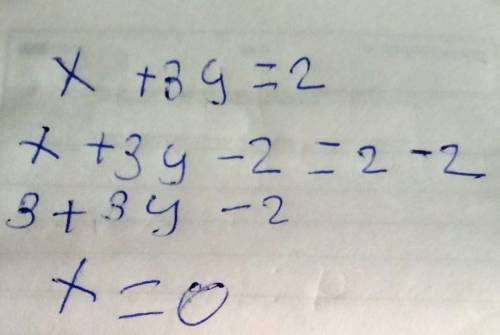 x + 3y = 2
x + 3y - 2 = 2 - 2
3 + 3y - 2
x = 0